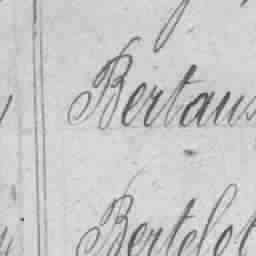 Bertaus
Bertelot